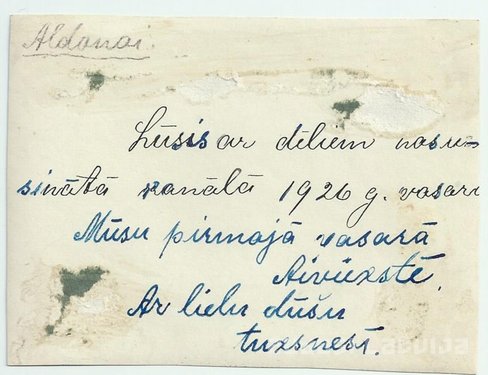 Aldonai.
Lūsis ar dēliem nosu-
sinātā kanālā 1926 g. vasarā
Mūsu pirmajā vasarā
Aiviekstē.
Ar lielu dūšu
tuksnesī.